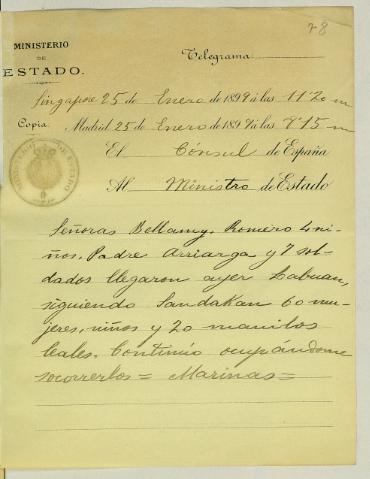 78
MINISTERIO
DE
ESTADO.
Telegrama
Singapore 25 de Enero de 1899 á las 11'20 m
Copia. Madrid 25 de Enero de 1899 á las 7'15 m
El Cónsul de España
Al Ministro de Estado
Señoras Bellamy, Romero 4 ni-
ños, Padre Arriarga y 7 sol-
dados llegaron ayer Labuan,
siguiendo Sandakan 60 mu-
jeres, niños y 20 manilos
leales. Continúo ocupándome
socorrerlos = Marinas =